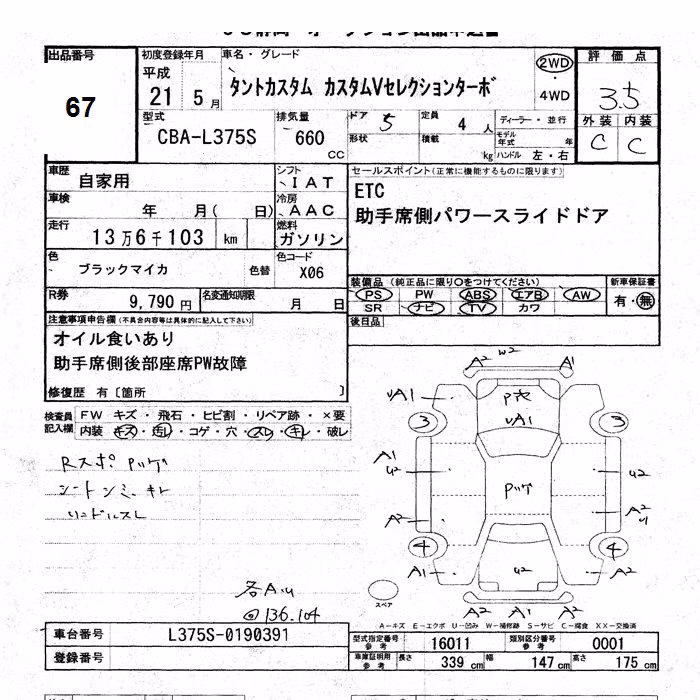 出品番号
67
初度登録年月
平成
21 5 月
車名・グレード
タントカスタム カスタムVセレクションターボ
2WD
4WD
評価点
3.5
外装 内装
C C
型式
CBA-L375S
排気量
660
CC
ドア 5
形状
定員 4 人
積載 kg
ディーラー・並行
モデル年式 年
ハンドル 左・右
車歴
自家用
シフト
IAT
車検
年 月( 日)
冷房
AAC
走行
13万6千103 km
燃料
ガソリン
色
ブラックマイカ
色替
色コード
X06
R券
9,790 円
名変通知期限
月 日
セールスポイント(正常に機能するものに限ります)
ETC
助手席側パワースライドドア
装備品 (純正品に限り○をつけてください)
PS PW ABS エアB AW
SR ナビ TV カワ
新車保証書
有・無
後日品
注意事項申告欄(不具合内容等は具体的に記入して下さい)
オイル食いあり
助手席側後部座席PW故障
修復歴 有〔箇所 〕
検査員
記入欄
FW キズ・飛石・ヒビ割・リペア跡・×要
内装 キズ・汚レ・コゲ・穴・スレ・キレ・破レ
A2 W2 A1
UA1
3 3
A1
U2 U2
A2 A2
4 4
A1 U2 A2
A2 A1 A2
スペア
@136.104
A-キズ E-エクボ U-凹み W-補修跡 S-サビ C-腐食 XX-交換済
車台番号
L375S-0190391
登録番号
型式指定番号
参考
16011
類別区分番号
参考
0001
車庫証明用
参考
長さ 339 cm 幅 147 cm 高さ 175 cm